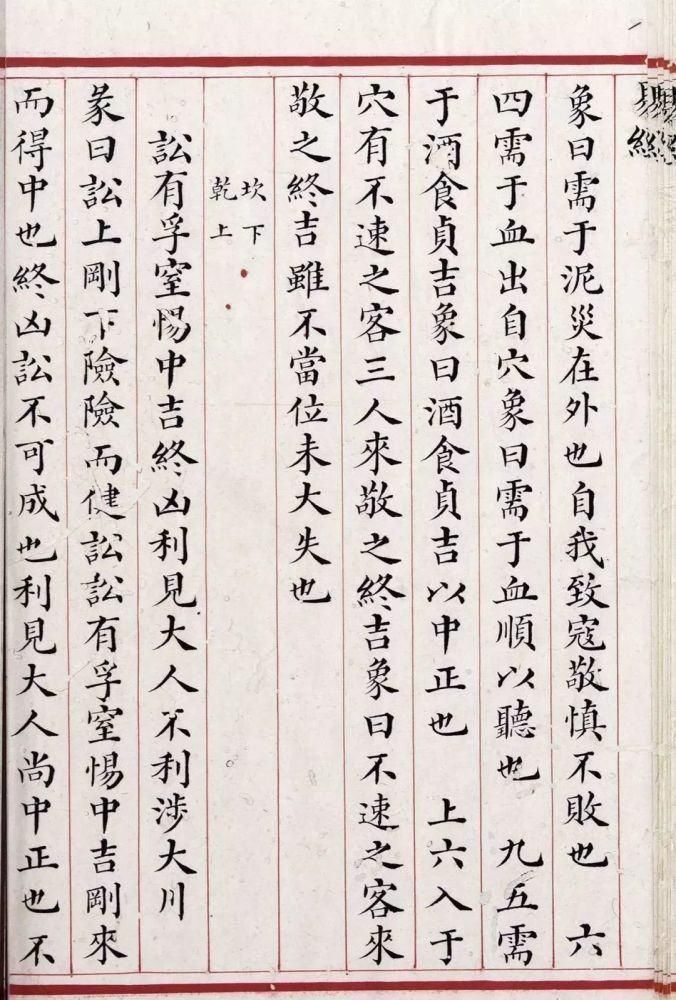 易經
象曰需于泥災在外也自我致寇敬慎不敗也 六
四需于血出自穴象曰需于血順以聽也 九五需
于酒食貞吉象曰酒食貞吉以中正也 上六入于
穴有不速之客三人來敬之終吉象曰不速之客來
敬之終吉雖不當位未大失也
坎下
乾上
訟有孚窒惕中吉終凶利見大人不利涉大川
彖曰訟上剛下險險而健訟訟有孚窒惕中吉剛來
而得中也終凶訟不可成也利見大人尚中正也不